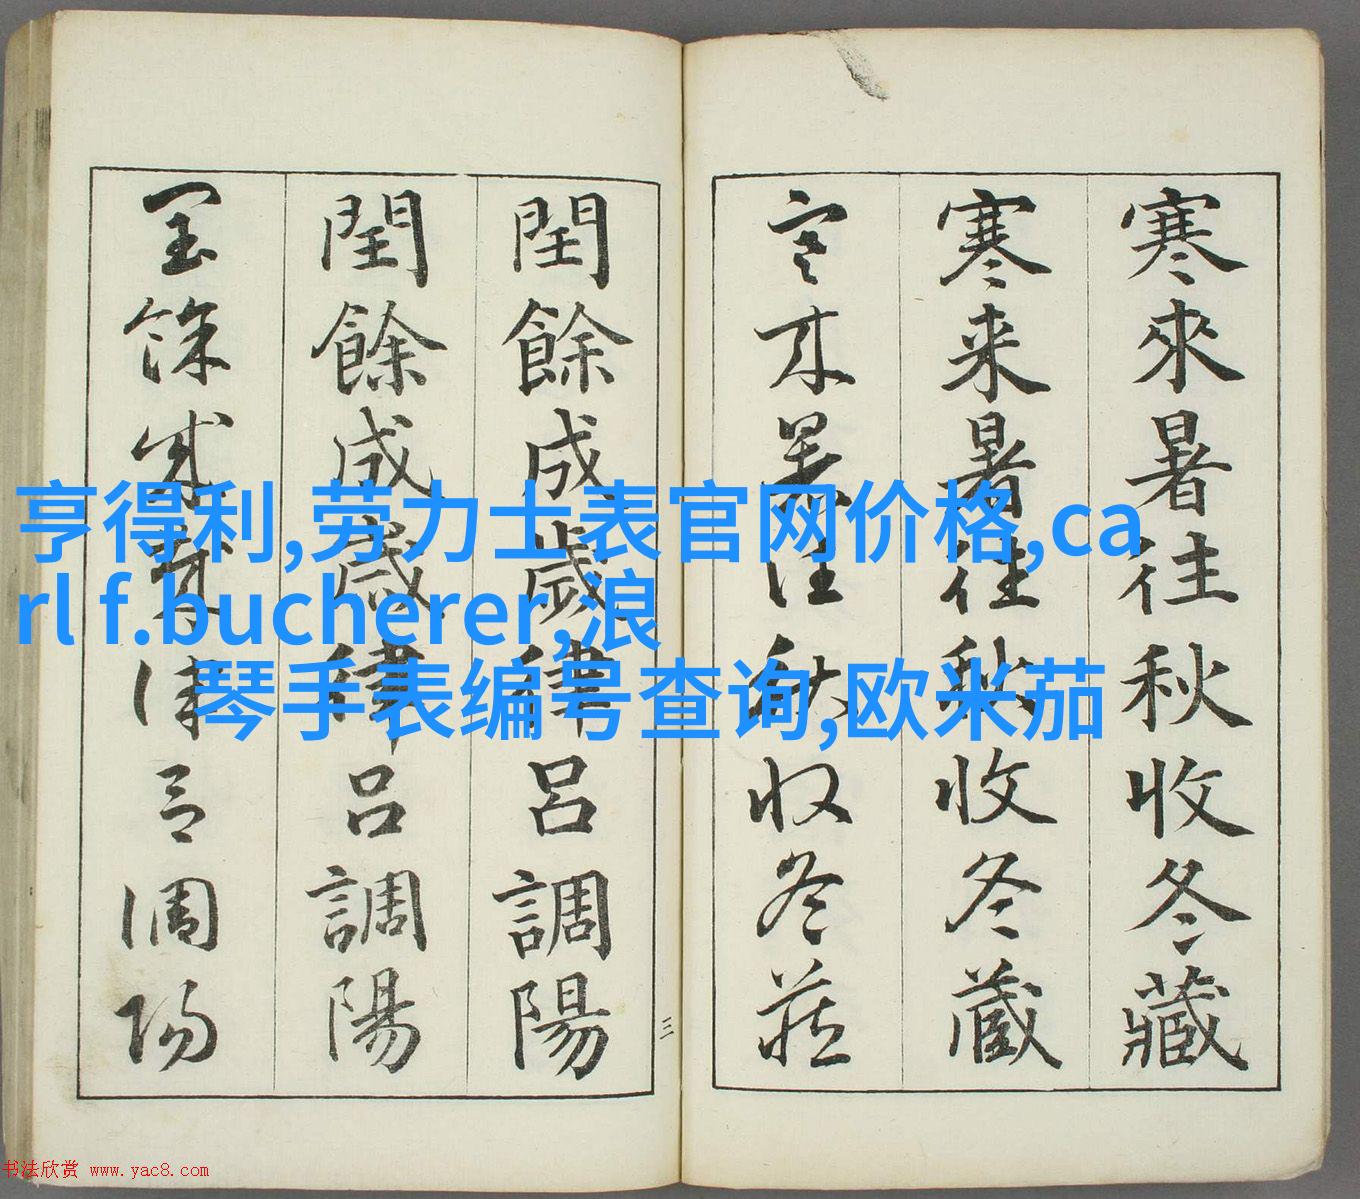 寒來暑往秋收冬藏
寒来暑往秋收冬蔵
寒来暑往秋収冬蔵
閏餘成歲律呂調陽
閏餘成歳律呂調陽
閏餘成歳律呂調陽
三
亨得利,劳力士表官网价格,ca
rl f.bucherer,浪
琴手表编号查询,欧米茄
书法欣赏 www.yac8.com